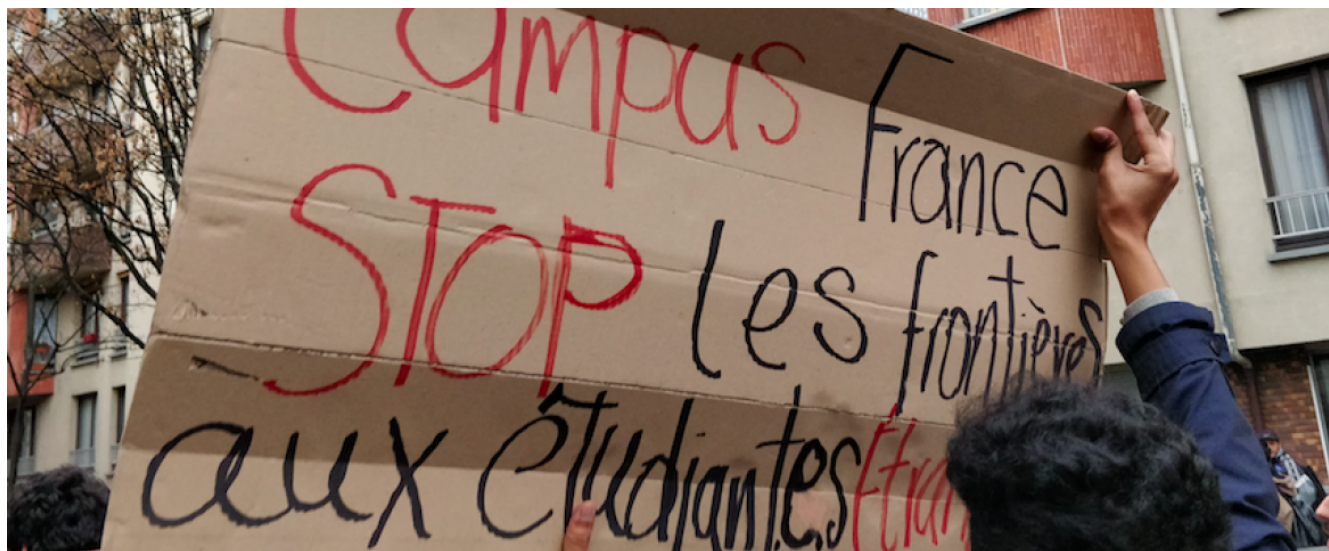 Campus France
STOP les frontières
aux étudiant.e.s